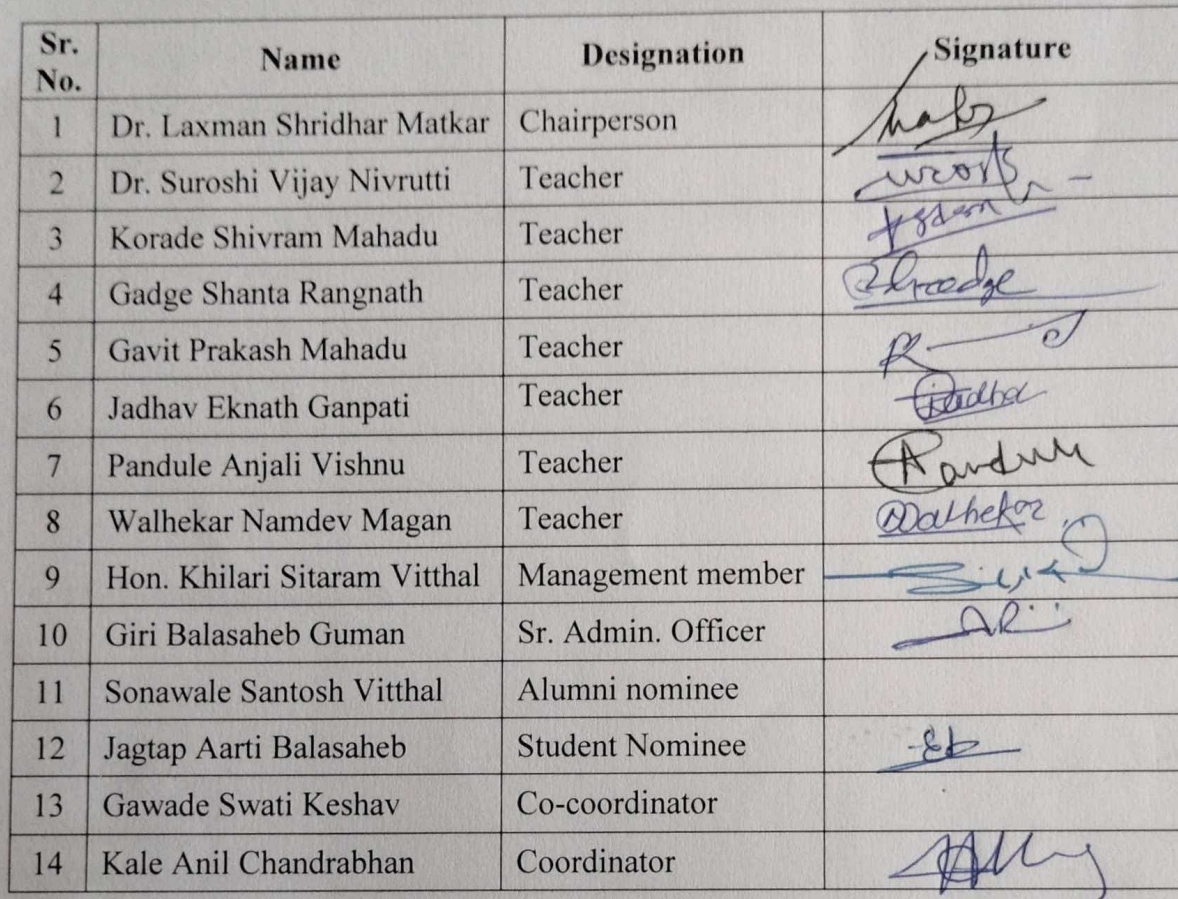 Sr. No. Name Designation Signature
1 Dr. Laxman Shridhar Matkar Chairperson
2 Dr. Suroshi Vijay Nivrutti Teacher
3 Korade Shivram Mahadu Teacher
4 Gadge Shanta Rangnath Teacher
5 Gavit Prakash Mahadu Teacher
6 Jadhav Eknath Ganpati Teacher
7 Pandule Anjali Vishnu Teacher
8 Walhekar Namdev Magan Teacher Walhekar
9 Hon. Khilari Sitaram Vitthal Management member
10 Giri Balasaheb Guman Sr. Admin. Officer
11 Sonawale Santosh Vitthal Alumni nominee
12 Jagtap Aarti Balasaheb Student Nominee
13 Gawade Swati Keshav Co-coordinator
14 Kale Anil Chandrabhan Coordinator